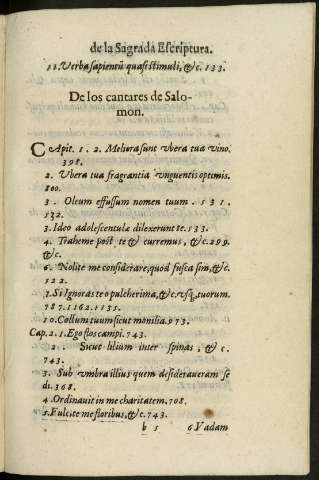 de la Sagrada Escriptura.
11. Verba sapientū quasi stimuli, &c. 133.
De los cantares de Salo-
mon.
CApit. 1. 2. Meliora sunt vbera tua vino.
398.
2. Vbera tua fragrantia vnguentis optimis.
800.
3. Oleum effussum nomen tuum. 131.
132.
3. Ideo adolescentulæ dilexerunt te. 133.
4. Traheme post te & curremus, &c. 299.
&c.
6. Nolite me considerare, quod fusca sim, &c.
122.
7. Si Ignoras te o pulcherima, &c. vsq; tuorum.
787. 1162. 1135.
10. Collum tuum sicut monilia. 973.
Cap. 2. 1. Ego flos campi. 743.
2. Sicut lilium inter spinas, & c.
743.
3. Sub vmbra illius quem desideraueram se
di. 368.
4. Ordinauit in me charitatem. 708.
5. Fulcite me floribus, &c. 743.
b 5 6 Vadam